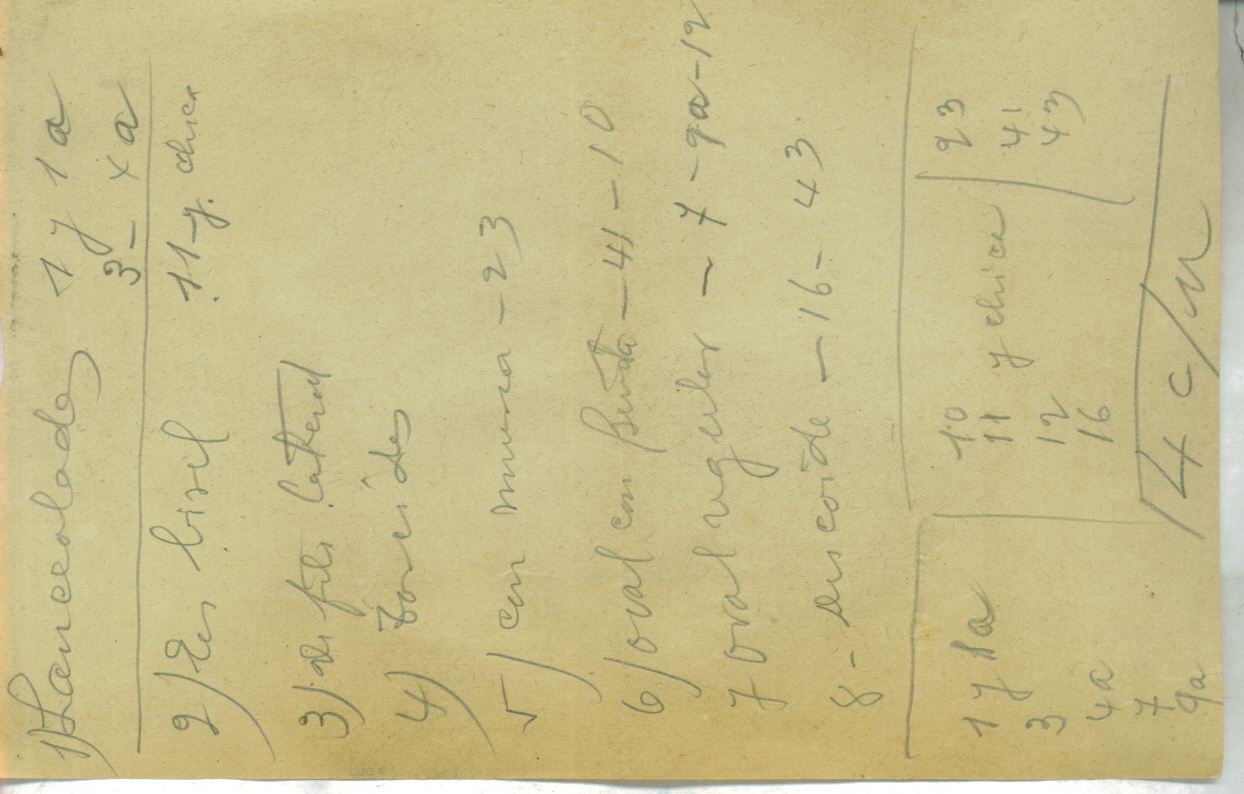 1) Lanceolados 1 y 1a
3 - xa
2) En bisel 11 - y. chica
3) de filo lateral
4) Foveides
5) con muesca - 23
6) oval con punta - 41 - 10
7 oval - 7 - 9a - 12
8 - discoide - 16 - 43
1 y 1a
3
4a
7
9a
10
11 y chica
12
16
23
41
43
4 c/u